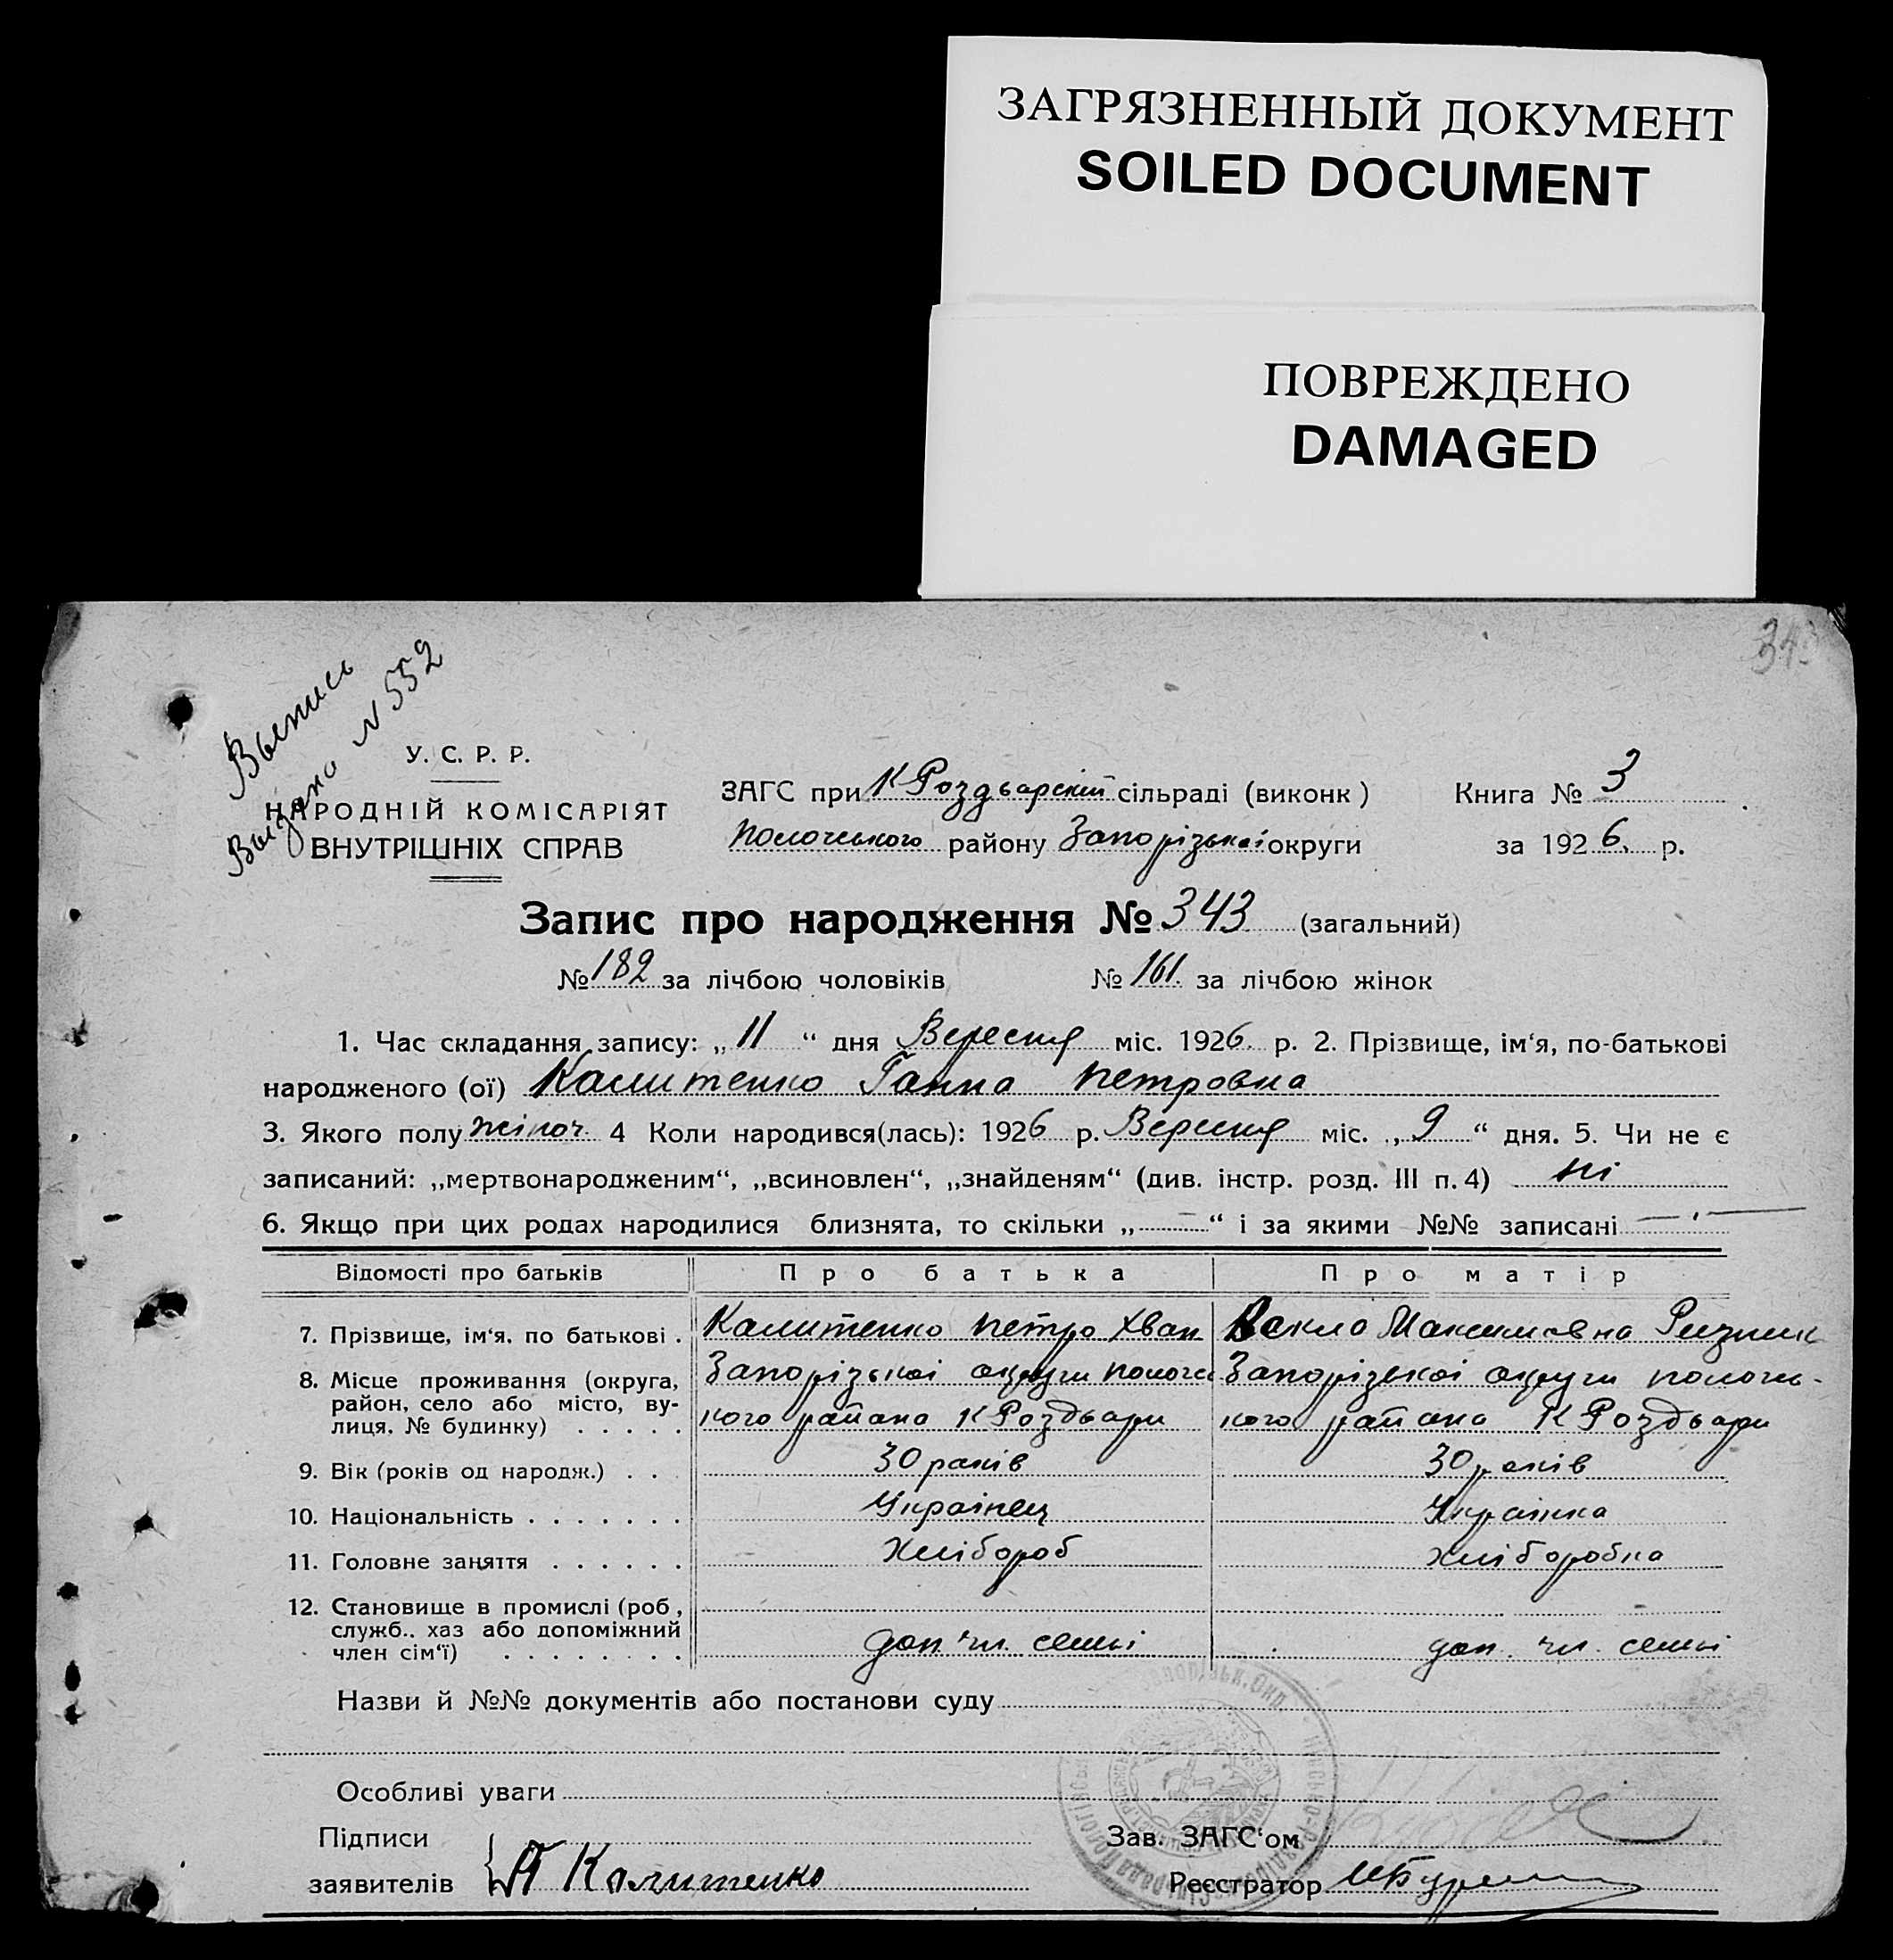 ЗАГРЯЗНЕННЫЙ ДОКУМЕНТ
SOILED DOCUMENT
ПОВРЕЖДЕНО
DAMAGED
343
Выпись
Выдано N 552
У. С. Р. Р.
НАРОДНІЙ КОМІСАРІЯТ
ВНУТРІШНІХ СПРАВ
ЗАГС при К Роздорскій сільраді (виконк) Книга № 3
Пологського району Запорізькоі округи за 1926. р.
Запис про народження № 343 (загальний)
№ 182 за лічбою чоловіків № 161. за лічбою жінок
1. Час складання запису: „ 11 “ дня Вересня міс. 1926. р. 2. Прізвище, ім‘я, по-батькові
народженого (ої) Калитенко Ганна Петровна
3. Якого полу жіноч. 4 Коли народився(лась): 1926 р. Вересня міс. „ 9 “ дня. 5. Чи не є
записаний: „мертвонародженим“, „всиновлен“, „знайденям“ (див. інстр. розд. III п. 4) ні
6. Якщо при цих родах народилися близнята, то скільки „ — “ і за якими №№ записані —
Відомості про батьків Про батька Про матір
7. Прізвище, ім‘я, по батькові . Калитенко Петро Хван Максимовна Ризник
8. Місце проживання (округа, район, село або місто, вулиця, № будинку) . . . . .
Запорізькоі округи Пологсь Запорізькоі округи пологсь-
кого района К Роздори кого района К Роздори
9. Вік (років од народж.) . . . 30 років 30 років
10. Національність . . . . . . . Украінец Украінка
11. Головне заняття . . . . . . Хлібороб хліборобка
12. Становище в промислі (роб, служб., хаз або допоміжний
член сім‘ї) . . . . . . . . доп. чл. семьі доп. чл. семьі
Назви й №№ документів або постанови суду
Особливі уваги
Підписи Зав. ЗАГС‘ом
заявителів П Калитенко Реєстратор